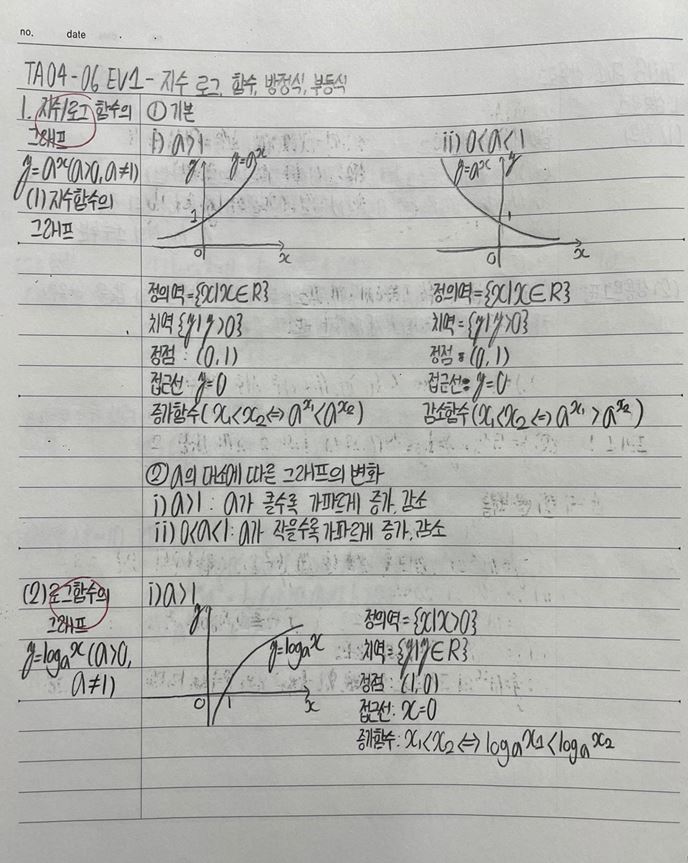 no. date . .
TA04-06 EV1 - 지수 로그, 함수, 방정식, 부등식
1. 지수/로그 함수의 ① 기본
그래프 i) a>1 ii) 0<a<1
y=aˣ(a>0, a≠1) y y=aˣ y=aˣ y
(1) 지수함수의 1 1
그래프 0 x 0 x
정의역={x|x∈R} 정의역={x|x∈R}
치역{y|y>0} 치역={y|y>0}
정점: (0,1) 정점: (0,1)
접근선: y=0 접근선: y=0
증가함수(x₁<x₂⇔a^x₁<a^x₂) 감소함수(x₁<x₂⇔a^x₁>a^x₂)
② a의 대소에 따른 그래프의 변화
i) a>1 : a가 클수록 가파르게 증가, 감소
ii) 0<a<1: a가 작을수록 가파르게 증가, 감소
(2) 로그함수의 i) a>1
그래프 y 정의역={x|x>0}
y=logₐx (a>0, y=logₐx 치역={y|y∈R}
a≠1) 정점: (1,0)
0 1 x 접근선: x=0
증가함수: x₁<x₂⇔logₐx₁<logₐx₂